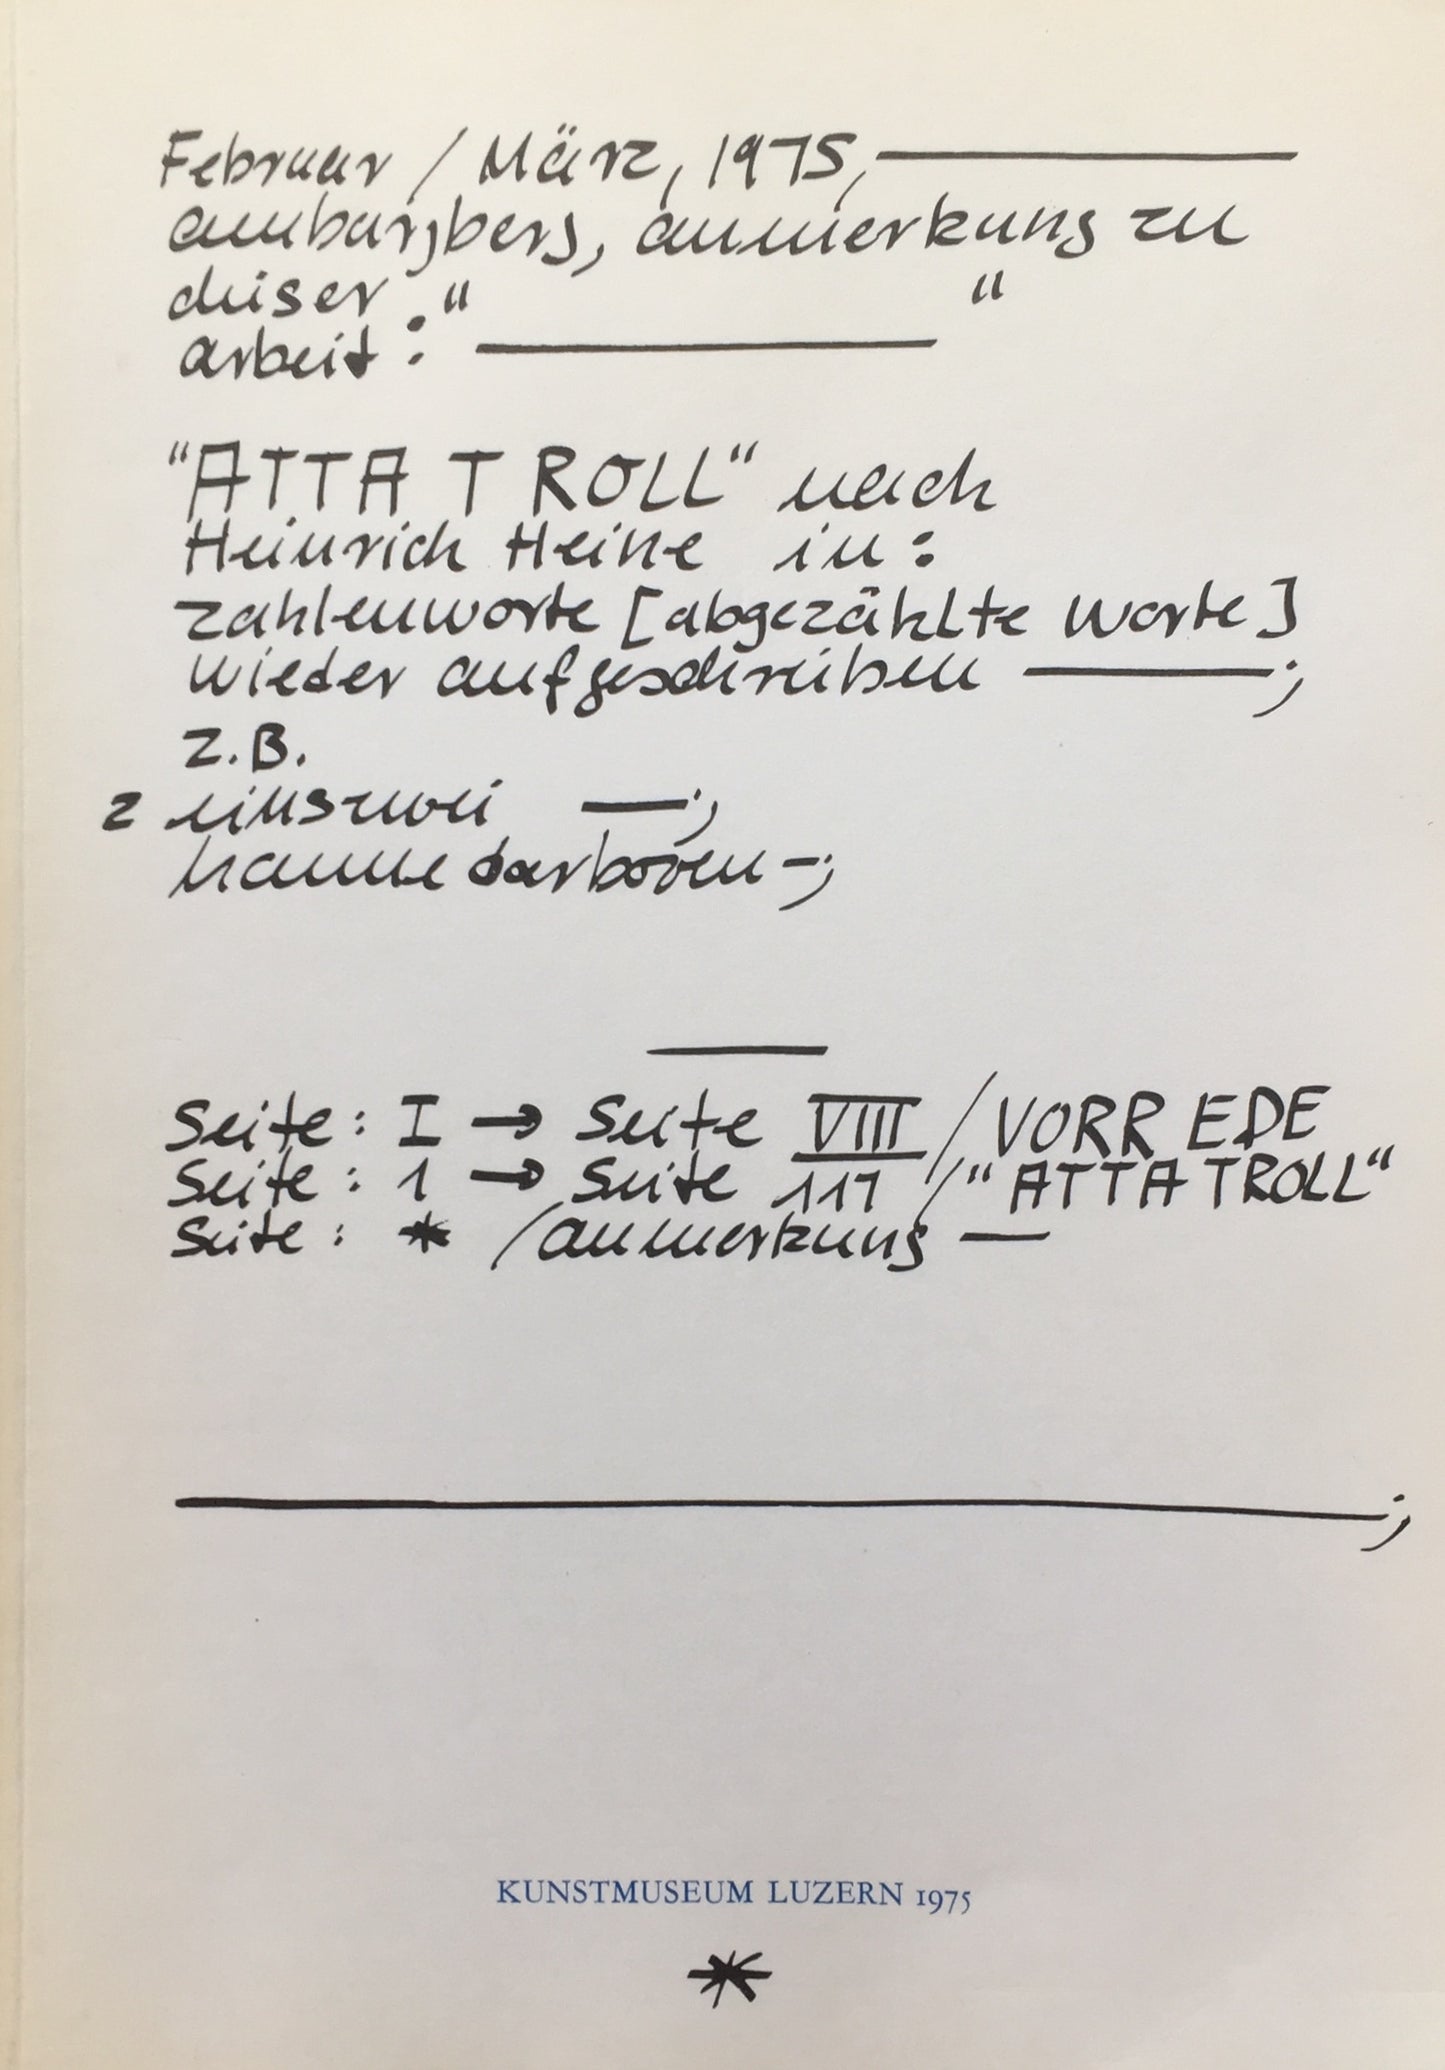 Februar / März, 1975, ———
am burgberg, anmerkung zu
dieser " "
arbeit : ———
"ATTA TROLL" nach
Heinrich Heine in :
zahlenworte [abgezählte worte]
wieder aufgeschrieben ———;
z.B.
2 einszwei —;
hanne darboven —;
—
Seite : I → Seite VIII / VORREDE
Seite : 1 → Seite 111 / "ATTA TROLL"
Seite : * / anmerkung —
———;
KUNSTMUSEUM LUZERN 1975
*